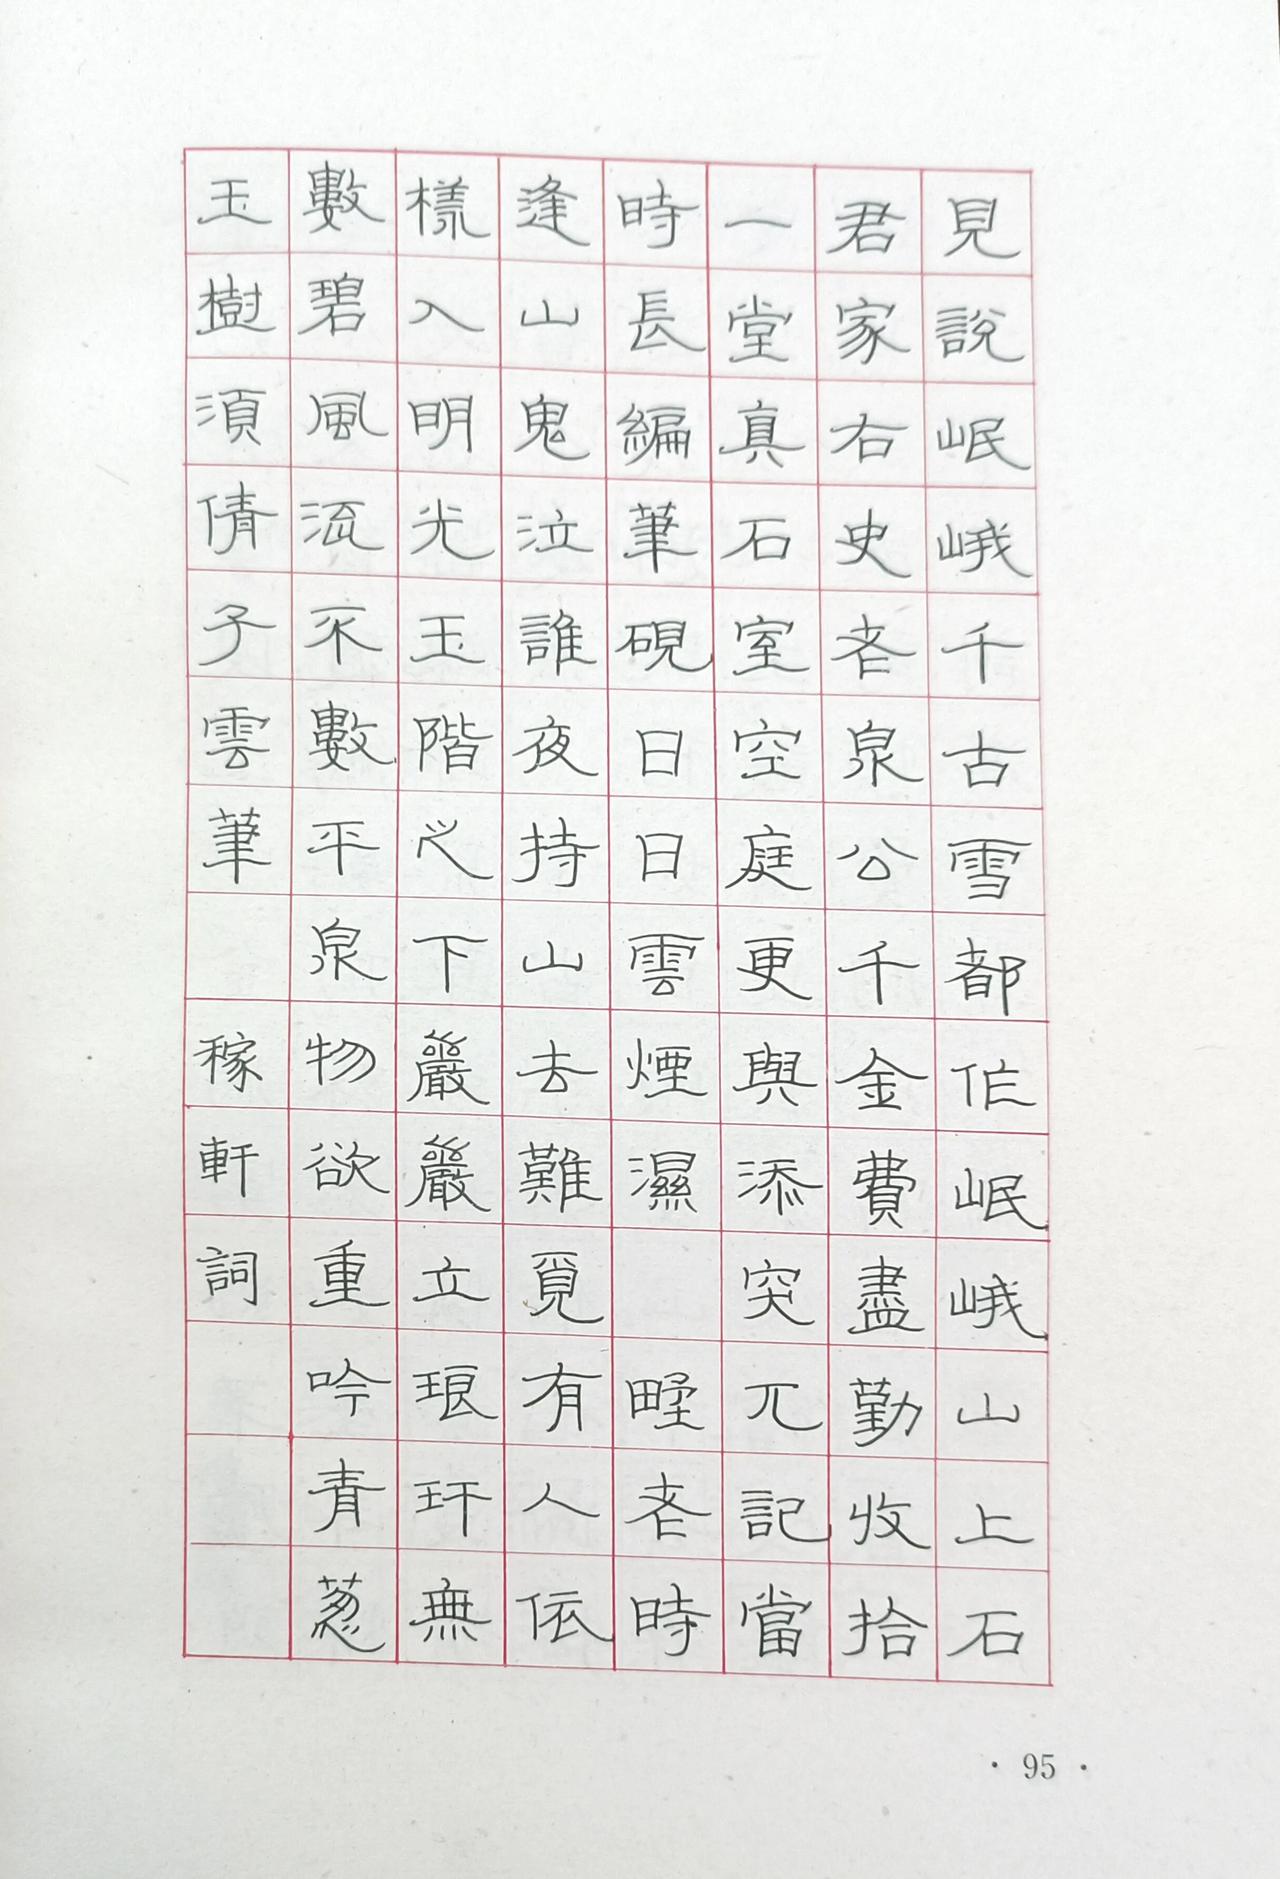 見說岷峨千古雪都作岷峨山上石
君家右史老泉公千金費盡勤收拾
一堂真石室空庭更與添突兀記當
時長編筆硯日日雲煙濕 野老時
逢山鬼泣誰夜持山去難覓有人依
樣入明光玉階之下巖巖立琅玕無
數碧風流不數平泉物欲重吟青蔥
玉樹須倩子雲筆 稼軒詞
· 95 ·